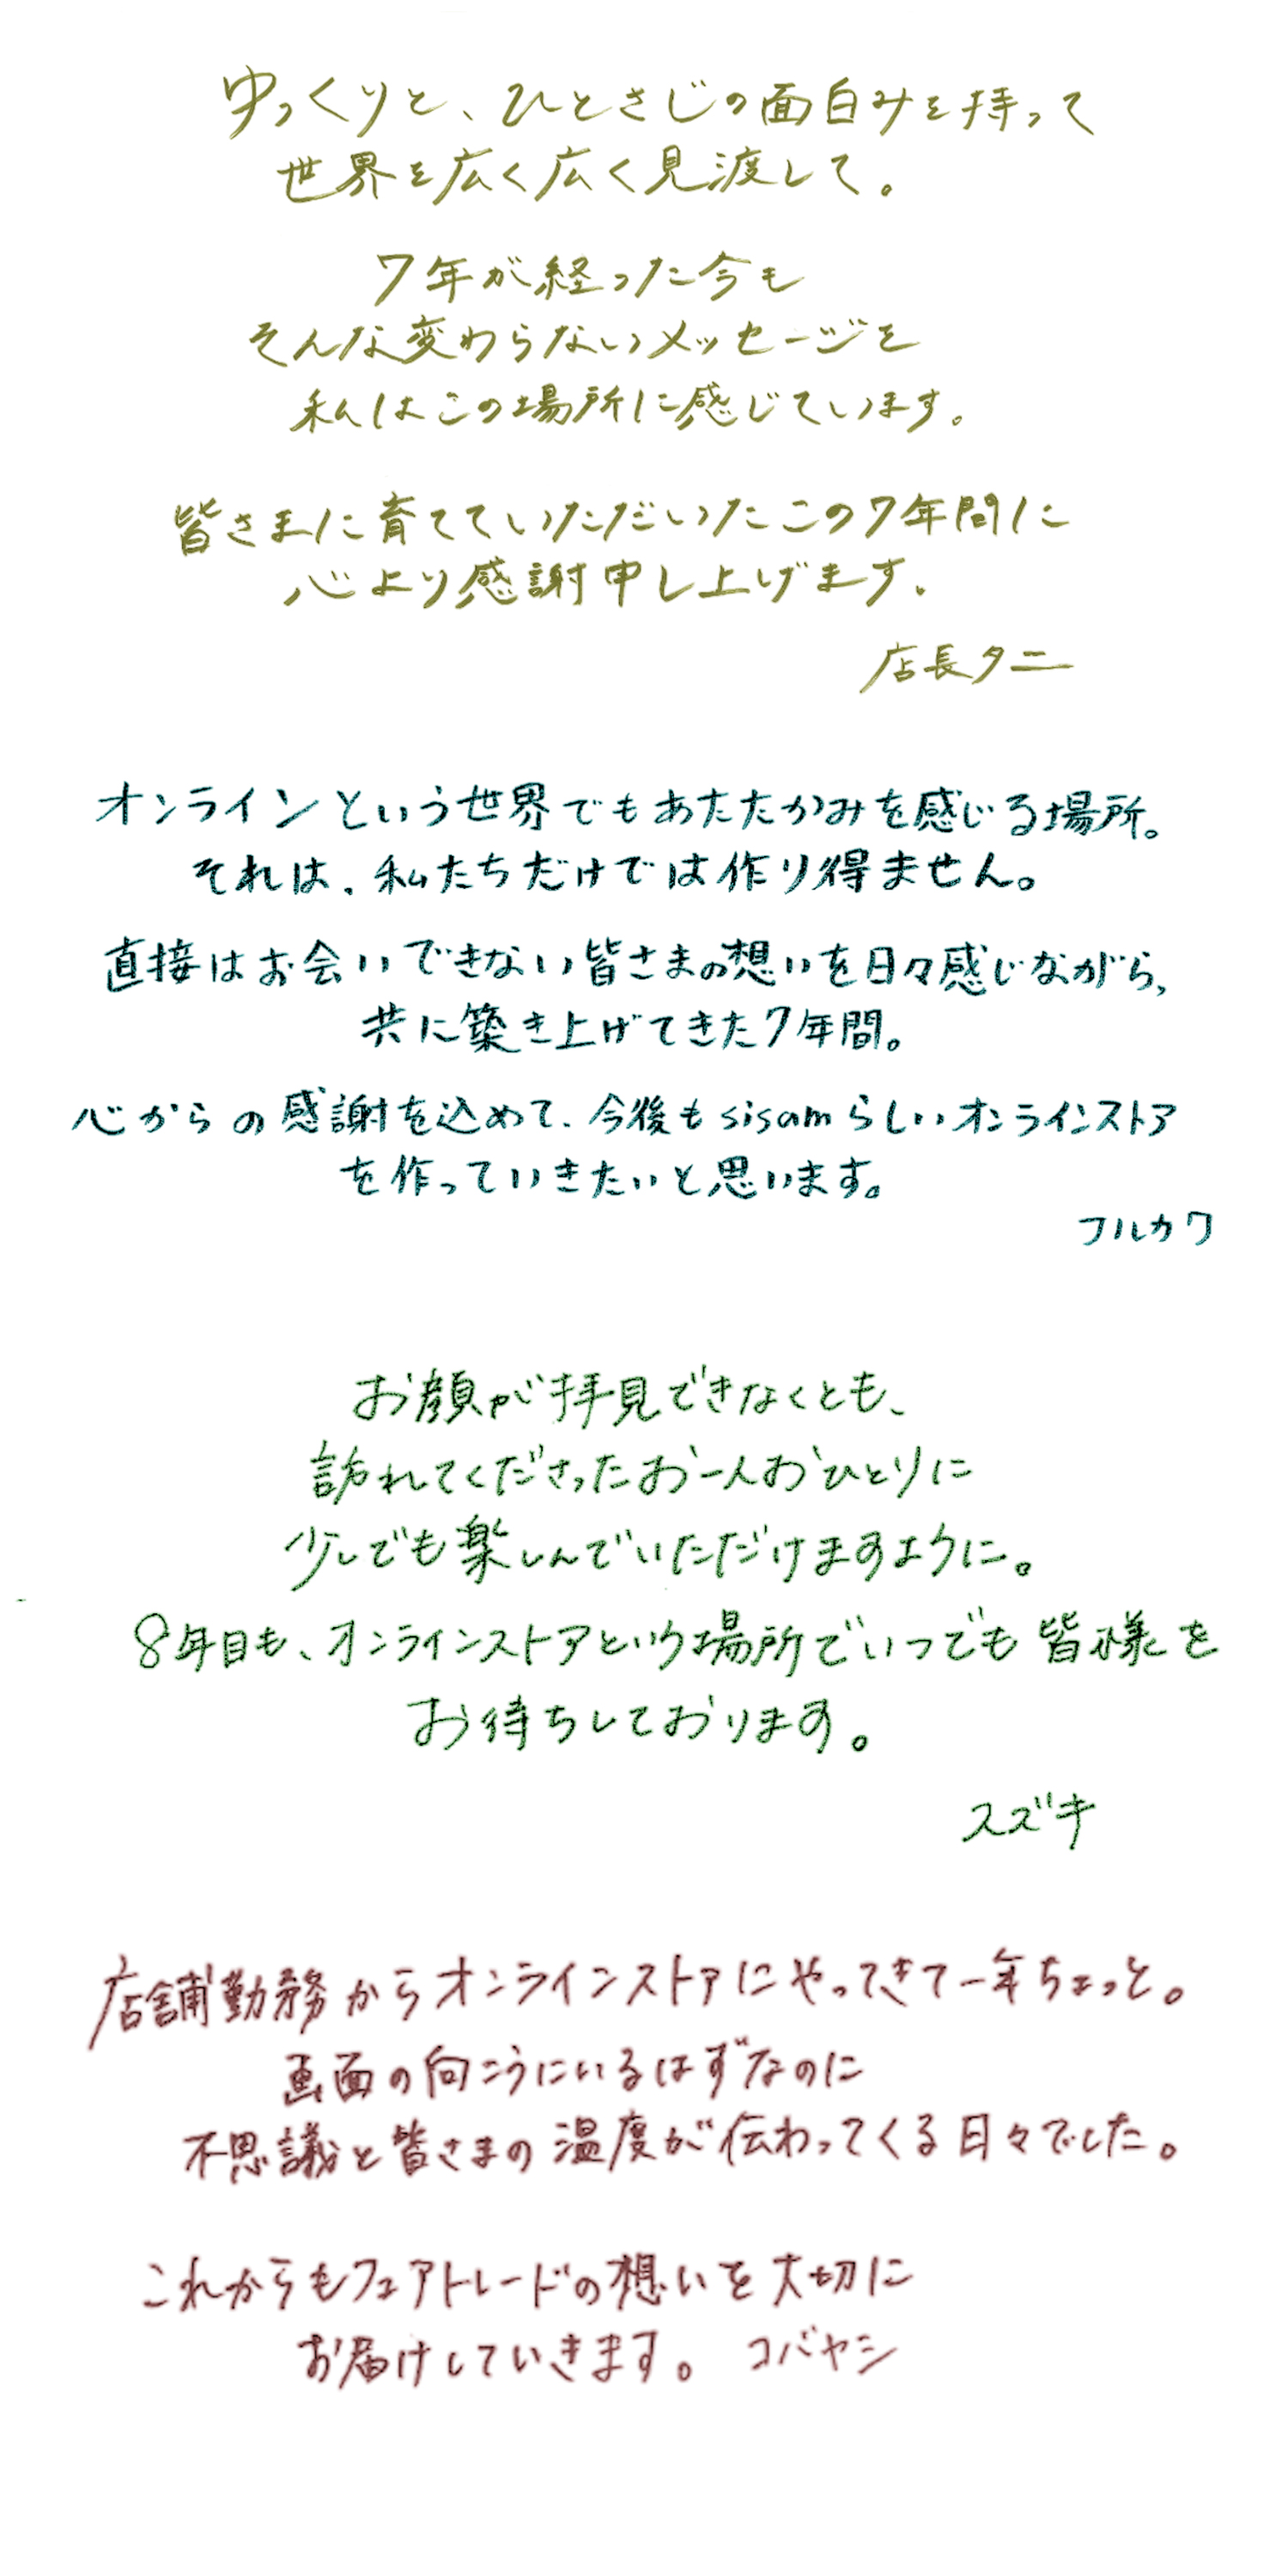 ゆっくりと、ひとさじの面白みを持って
世界を広く広く見渡して。
7年が経った今も
そんな変わらないメッセージを
私はこの場所に感じています。
皆さまに育てていただいたこの7年間に
心より感謝申し上げます。
店長タニ
オンラインという世界でもあたたかみを感じる場所。
それは、私たちだけでは作り得ません。
直接はお会いできない皆さまの想いを日々感じながら、
共に築き上げてきた7年間。
心からの感謝を込めて、今後もsisamらしいオンラインストア
を作っていきたいと思います。
フルカワ
お顔が拝見できなくとも、
訪れてくださったお一人おひとりに
少しでも楽しんでいただけますように。
8年目も、オンラインストアという場所でいつでも皆様を
お待ちしております。
スズキ
店舗勤務からオンラインストアにやってきて一年ちょっと。
画面の向こうにいるはずなのに
不思議と皆さまの温度が伝わってくる日々でした。
これからもフェアトレードの想いを大切に
お届けしていきます。 コバヤシ